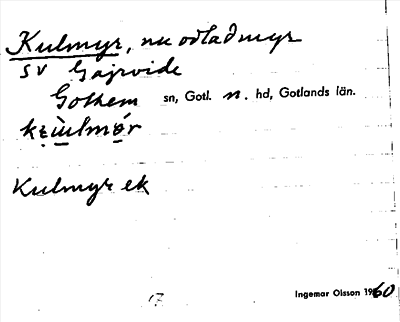 Kulmyr, nu odlad myr
SV Gajrvide
Gothem sn, Gotl. n. hd, Gotlands län.
Kulmyr ek
Ingemar Olsson 1960